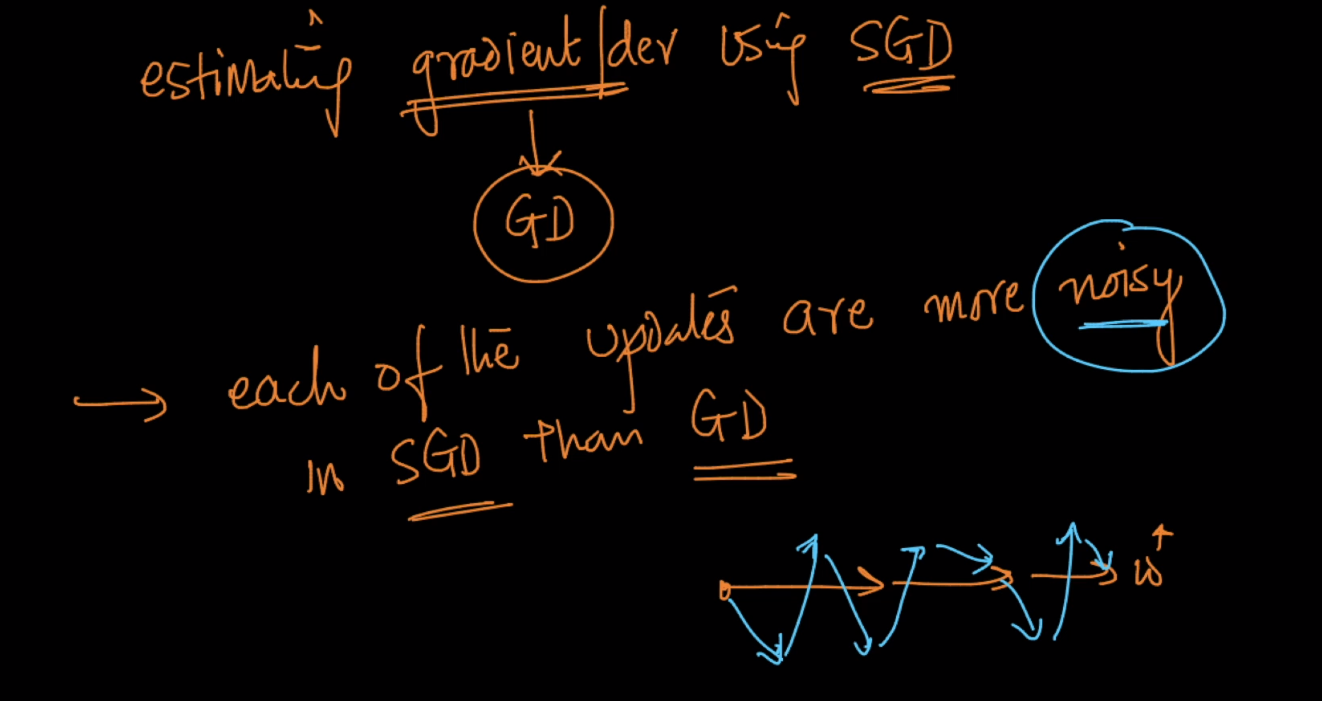 estimating gradient/der using SGD
GD
→ each of the updates are more noisy
in SGD than GD
w*